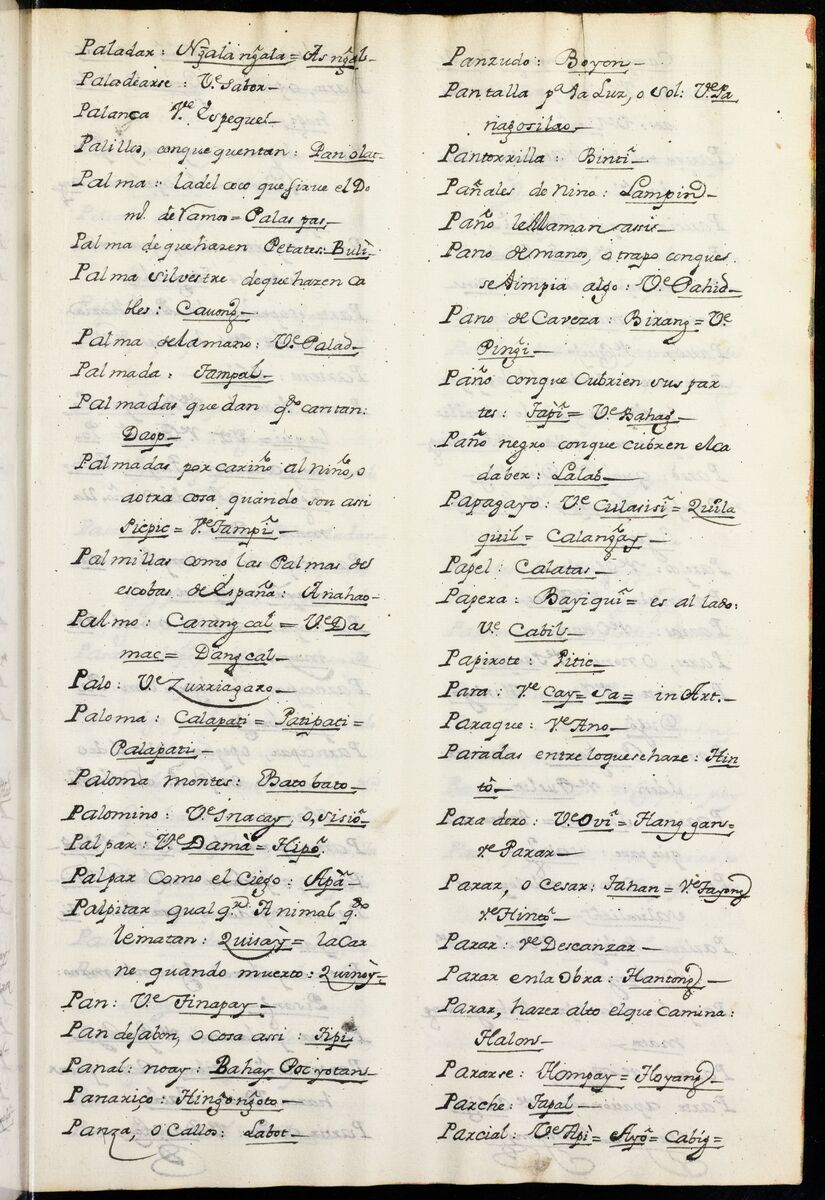 Paladar: Ng̃ala ng̃ala = As ng̃al_
Paladearse: Ve Sabor_
Palanca Ve Espeques_
Palillos, conque quentan: Panolat_
Palma: la del coco que sirve el Do
m.º de Ramos = Palas pas_
Palma de que hazen Petates: Buli_
Palma silvestre de que hazen Ca
bles: Cauong_
Palma de la mano: Ve Palad_
Palmada: Tampal_
Palmadas que dan q.do cantan:
Daop_
Palmadas por cariño al niño, o
a otra cosa quando son assi
Picpic = Ve Tampi_
Palmillas como las Palmas de
escobas de España: Anahao_
Palmo: Carang cal = Ve Da
mac = Dang cal_
Palo: Ve Zurriagazo_
Paloma: Calapati = Patipati =
Palapati_
Paloma montes: Bato bato_
Palomino: Ve Inacay, o, sisiõ_
Palpar: Ve Damà = Hipõ
Palpar como el Ciego: Apà_
Palpitar qualqr.a Animal q.do
le matan: Quisày = la car
ne quando muerto: Quinòy_
Pan: Ve Tinapay_
Pan de Jabon, o cosa assi: Tipi
Panal: noay: Bahay Pocyotan_
Panariço: Hing̃ong̃oto_
Panza, o Callos: Labot_
Panzudo: Boyon_
Pantalla p.a la Luz, o Sol: Ve Pa
nag̃osilao_
Pantorrilla: Binti_
Pañales de Nino: Lampin_
Paño le llaman assi_
Pano de mano, o trapo conque
se limpia algo: Ve Pahid_
Pano de Caveza: Birang = Ve
Ping̃i_
Paño conque Cubrien sus par
tes: Tapi = Ve Bahag_
Paño negro conque cubren el ca
daber: Lalab_
Papagayo: Ve Culasisi = Quila
quil = Calang̃ay_
Papel: Calatas_
Papera: Bayiqui = es al lado:
Ve Cabil_
Papirote: Pitic_
Para: Ve Cay = Sa = in Art._
Paraque: Ve Ano_
Paradas entre lo que se haze: Hin
tò_
Paradero: Ve Ovi = Hang gan =
Ve Parar_
Parar, o cesar: Tahan = Ve Tayong
Ve Hintò_
Parar: Ve Descanzar_
Parar en la Obra: Hantong_
Parar, hazer alto el que camina:
Halon_
Pararse: Hompay = Hoyang_
Parche: Tapal_
Parcial: Ve Api = Ayõ = Cabig =